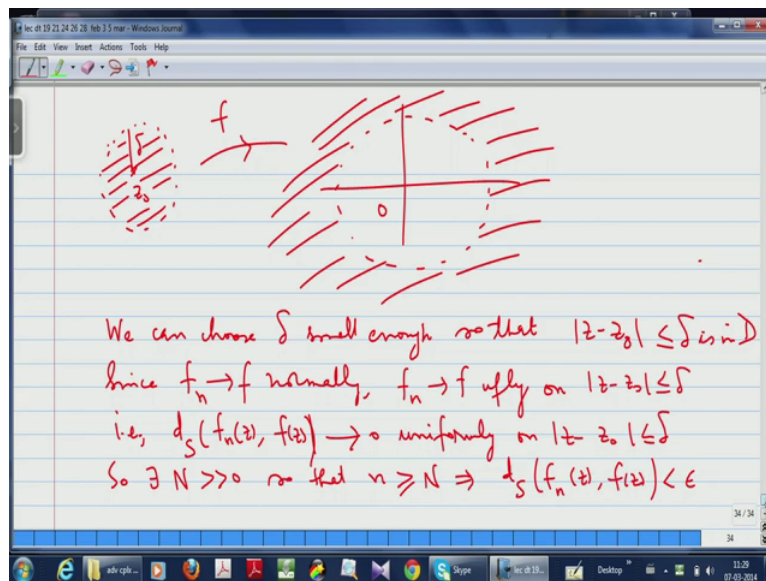 lec dt 19 21 24 26 28 feb 3 5 mar - Windows Journal
File Edit View Insert Actions Tools Help
f
δ
z₀
0
We can choose δ small enough so that |z-z₀| ≤ δ is in D
Since fₙ → f normally, fₙ → f ufly on |z-z₀| ≤ δ
i.e., d_S(fₙ(z), f(z)) → 0 uniformly on |z-z₀| ≤ δ
So ∃ N >> 0 so that n ≥ N ⇒ d_S(fₙ(z), f(z)) < ϵ
34 / 34
34
adv cplx ...
Skype
lec dt 19...
Desktop
11:29
07-03-2014